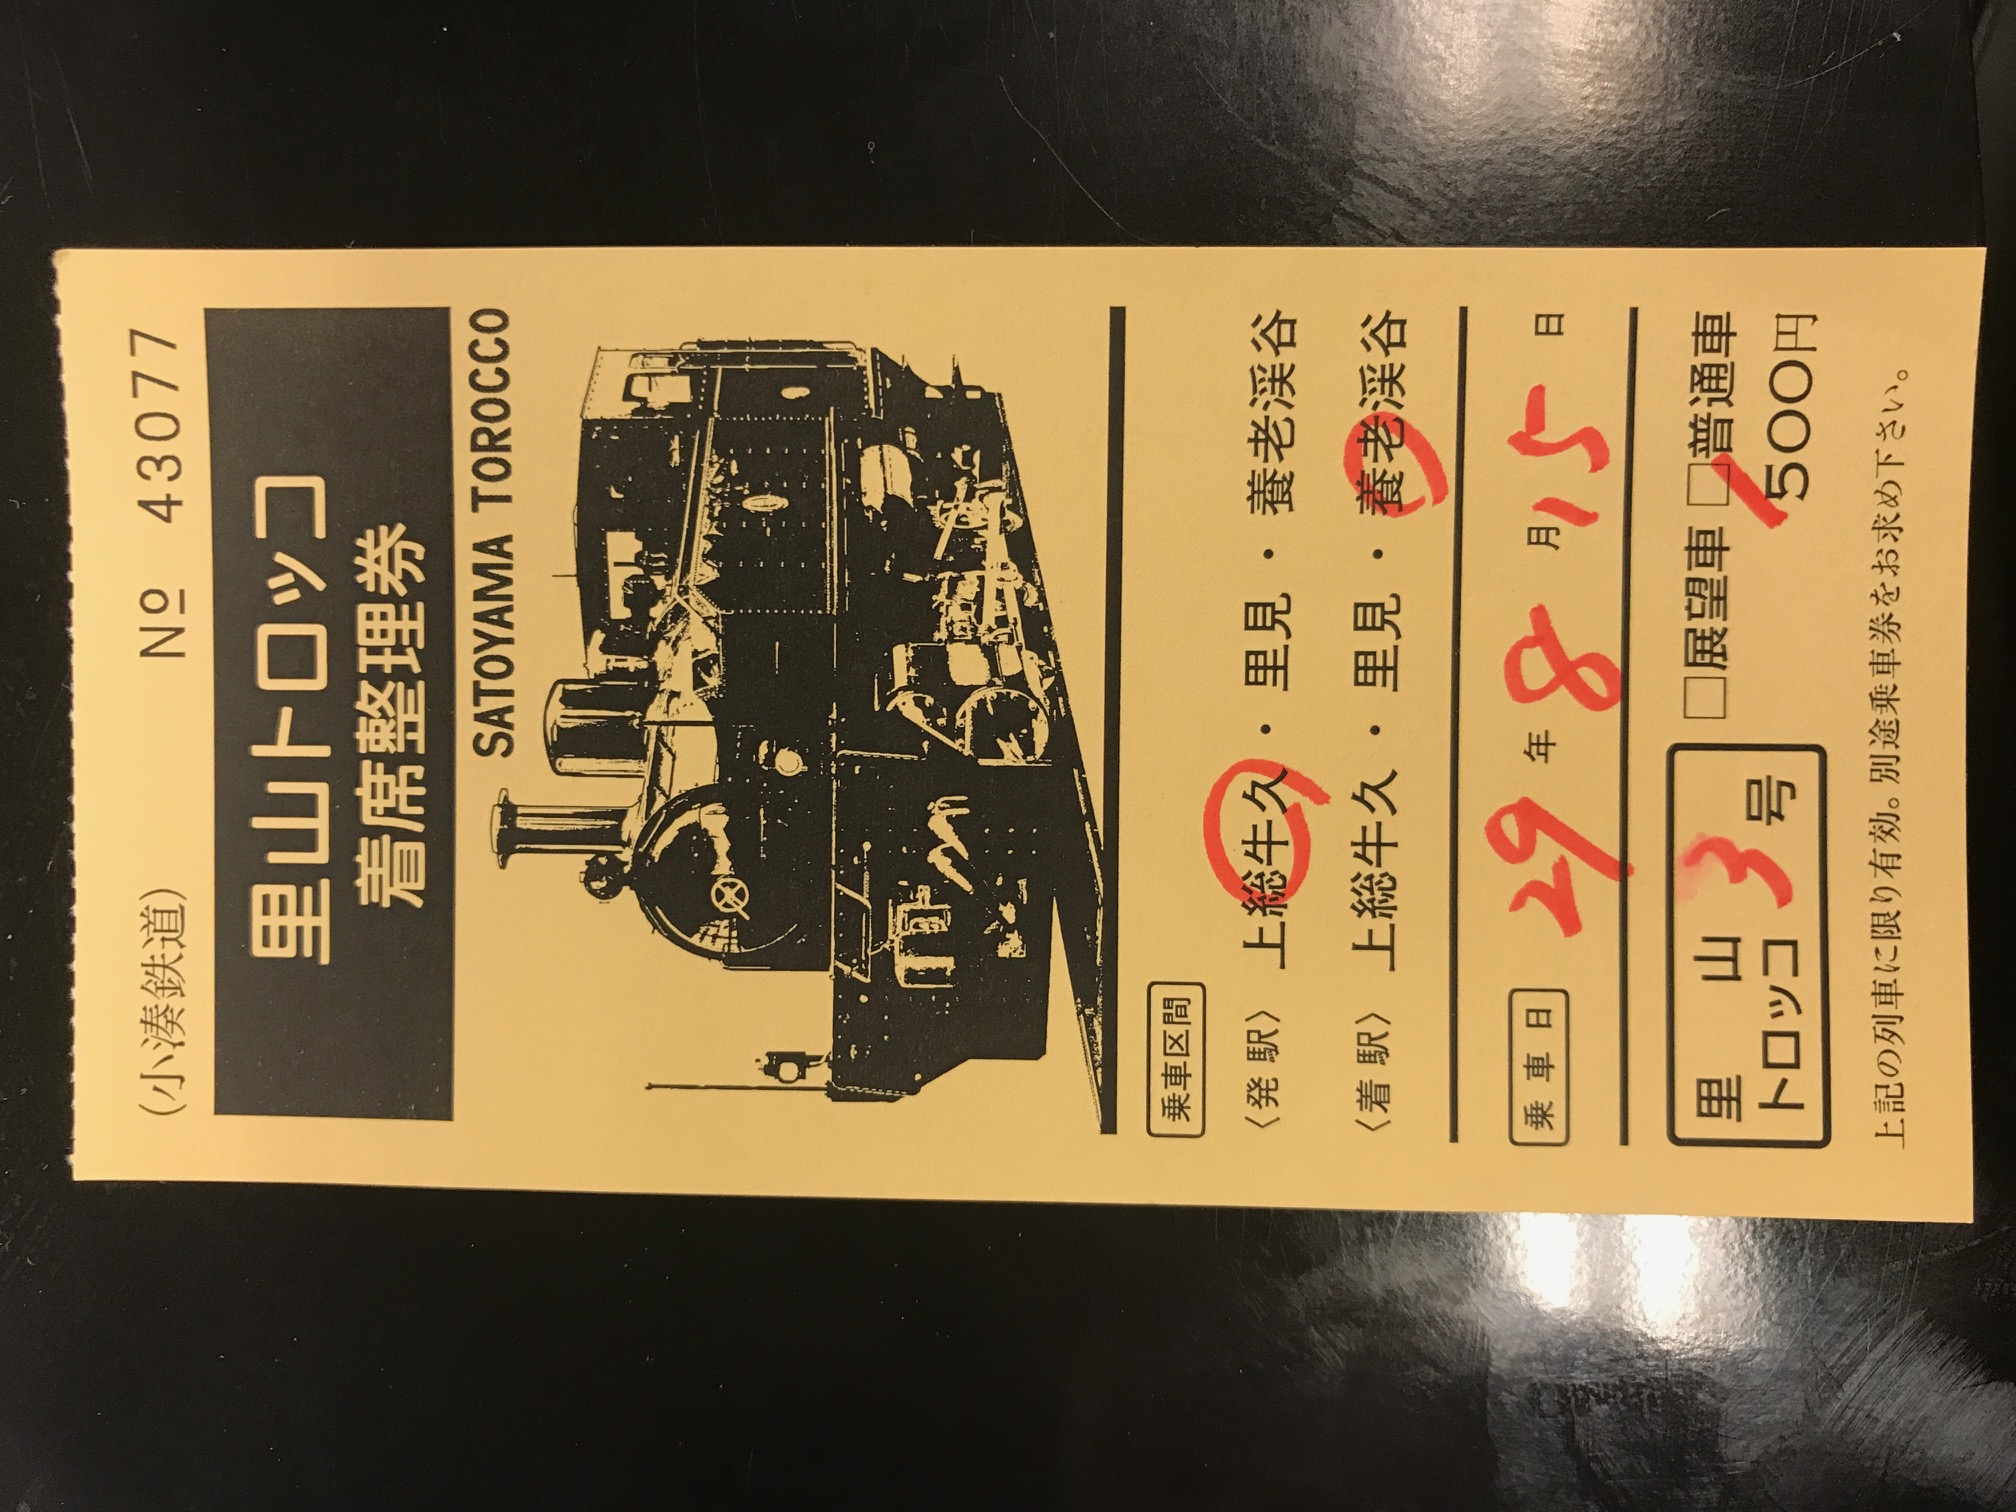 (小湊鉄道) № 43077
里山トロッコ
着席整理券
SATOYAMA TOROCCO
乗車区間
〈発駅〉 上総牛久・里見・養老渓谷
〈着駅〉 上総牛久・里見・養老渓谷
乗車日 29年8月15日
里山トロッコ3号
□展望車 □普通車
500円
上記の列車に限り有効。別途乗車券をお求め下さい。